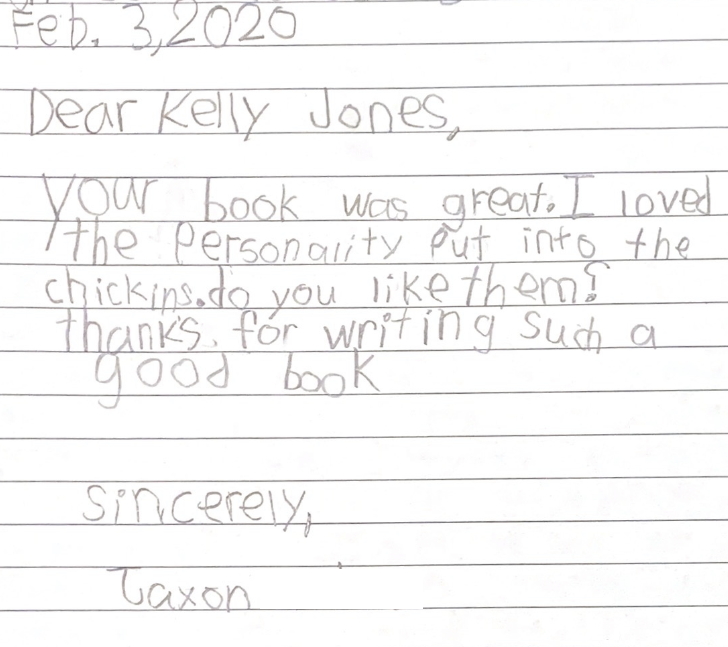 Feb. 3, 2020
Dear Kelly Jones,
your book was great. I loved
the Personality Put into the
chickins. do you like them?
thanks. for writing such a
good book
Sincerely,
Taxon